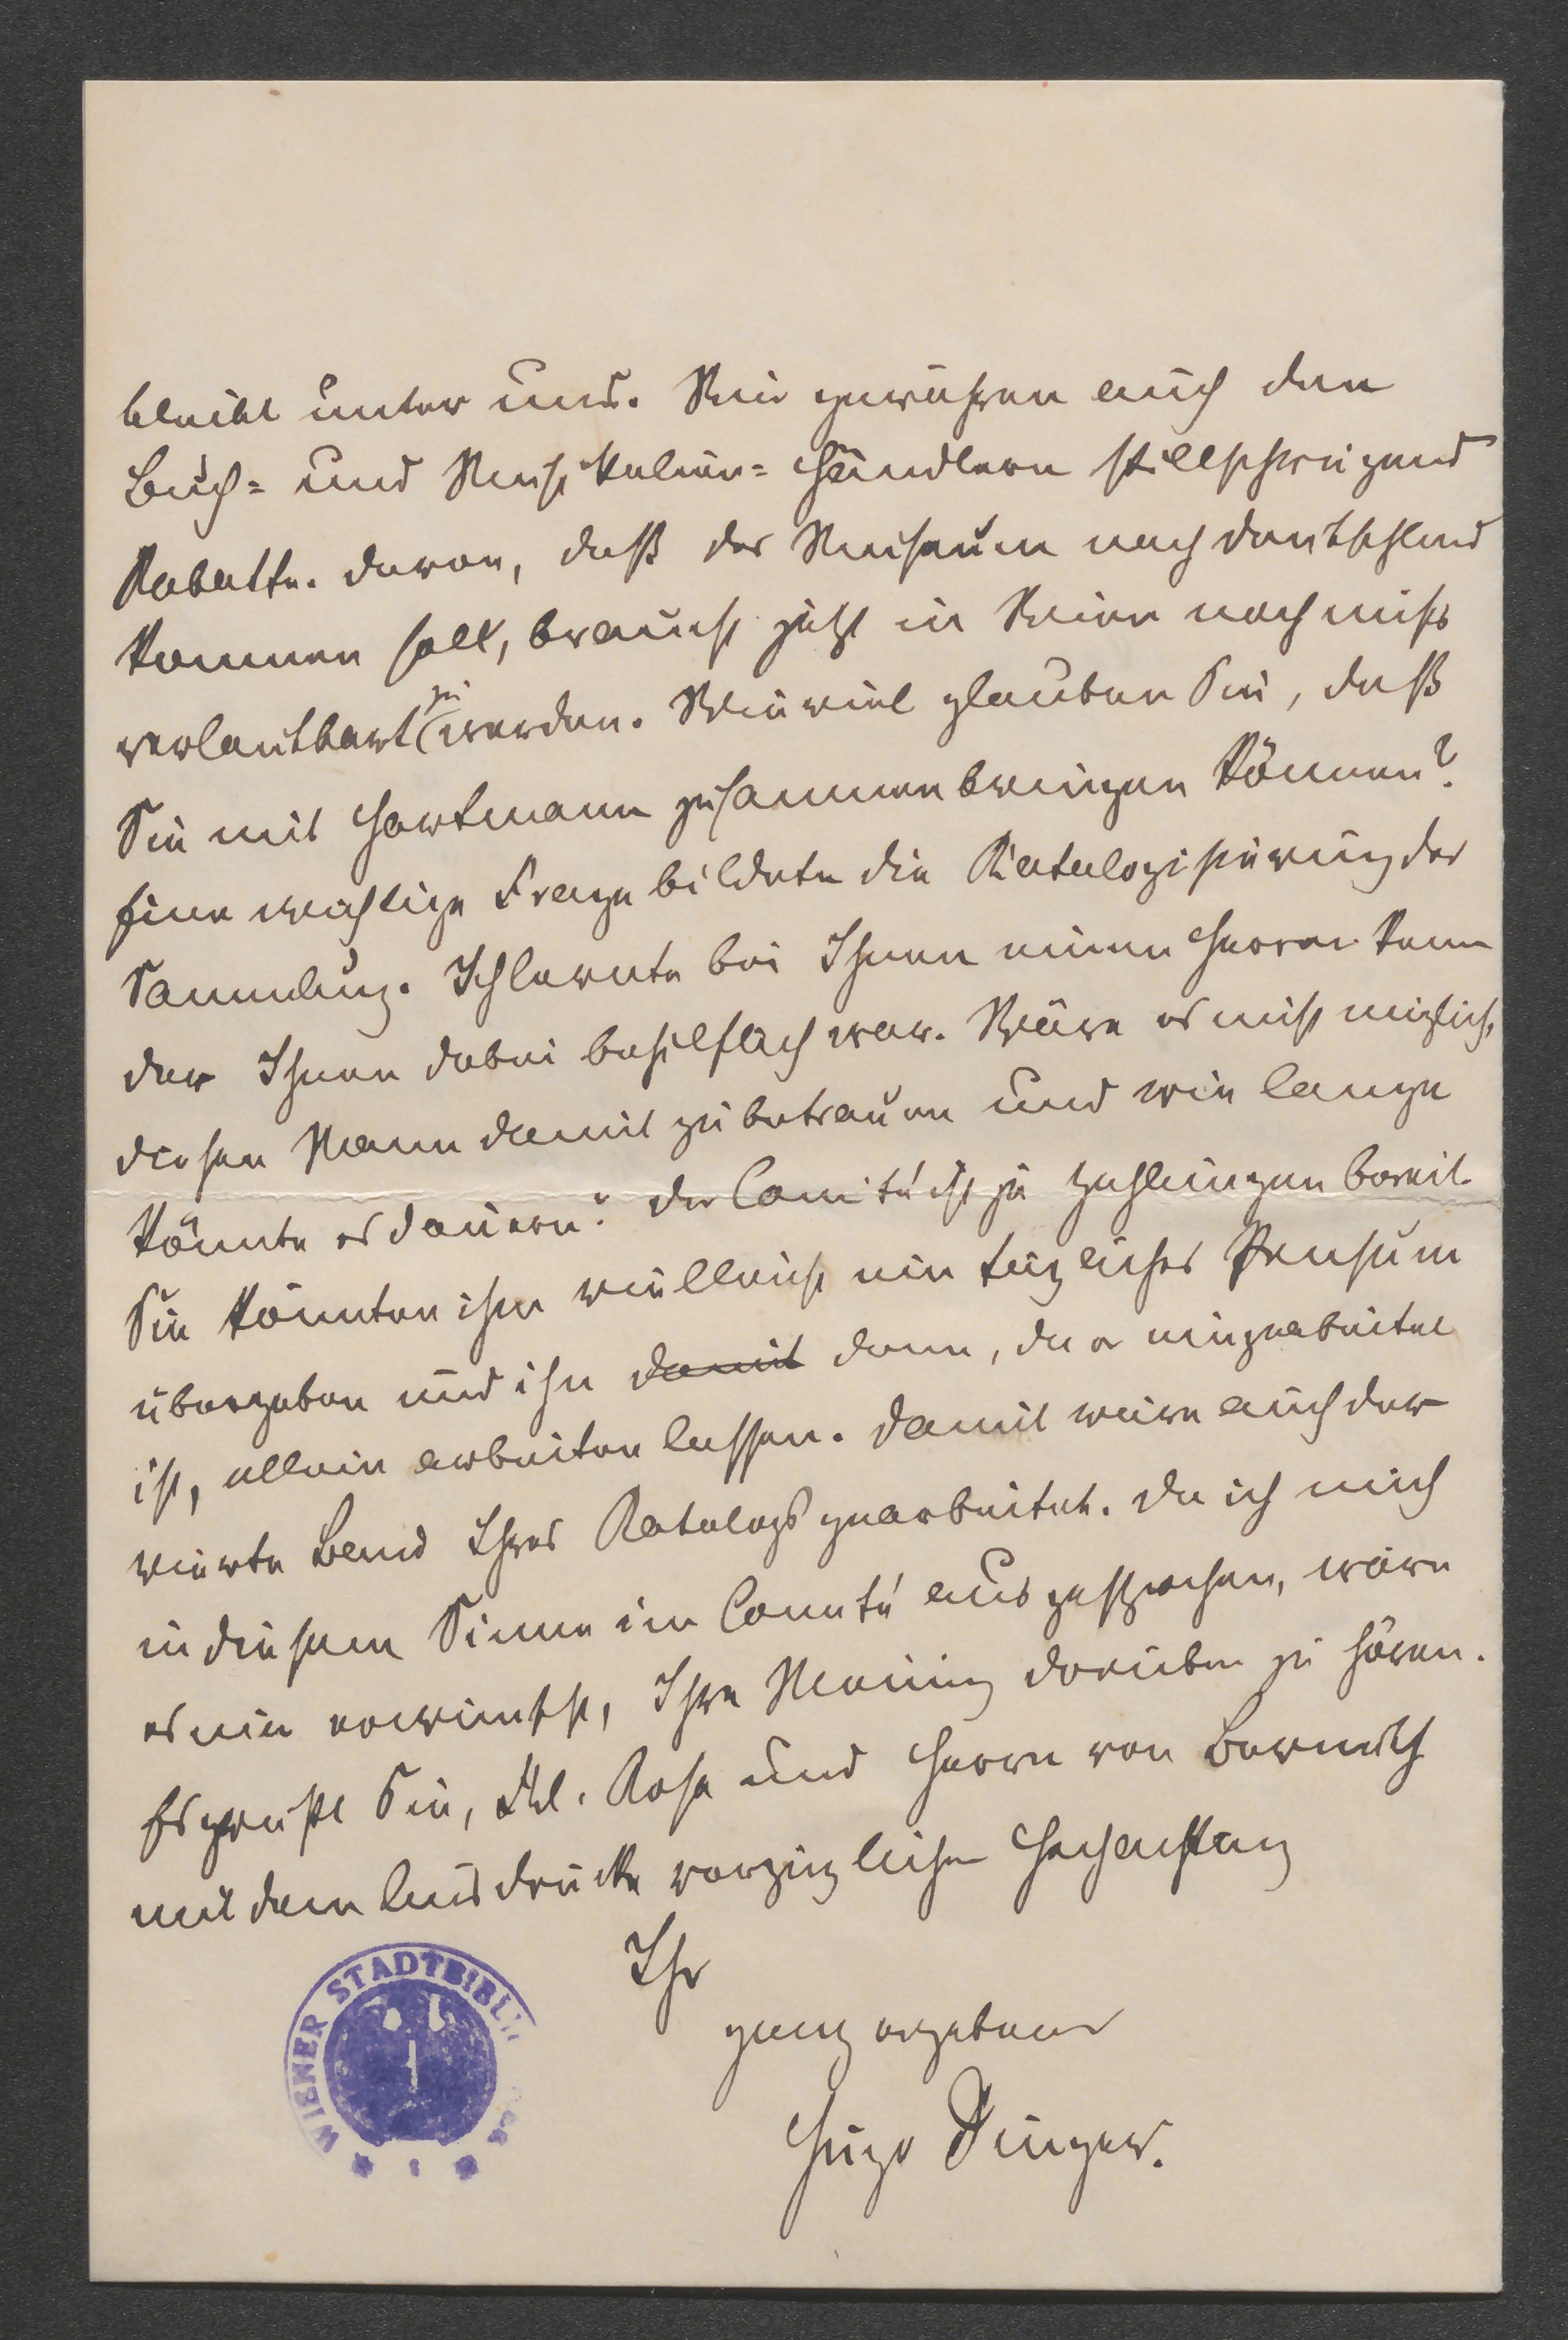 bleibt unter uns. Wir gewähren auch den
Buch= und Musikalien=Händlern stillschweigend
Rabatte. Davon, daß das Museum nach Deutschland
kommen soll, braucht jetzt in Wien noch nichts
verlautbart zu werden. Wie viel glauben Sie, daß
Sie mit Hartmann zusammenbringen können?
Eine wichtige Frage bildete die Katalogisirung der
Sammlung. Ich lernte bei Ihnen einen Herren kenn
der Ihnen dabei behilflich war. Wäre es nicht möglich,
diesen Mann damit zu betrauen und wie lange
könnte es dauern? Der Comité ist zu Zahlungen bereit.
Sie könnten ihm vielleicht ein tägliches Pensum
übergeben und ihn damit dann, da er eingearbeitet
ist, allein arbeiten lassen. Damit wäre auch der
vierte Band Ihres Katalogs gearbeitet. Da ich mich
in diesem Sinne im Comité ausgesprochen, wäre
es mir erwünscht, Ihre Meinung darüber zu hören.
Es grüßt Sie, Frl. Rosa und Herrn von
mit dem Ausdrucke vorzüglicher Hochachtung
Ihr
ganz ergebener
Hugo Dinger.
WIENER STADTBIBL